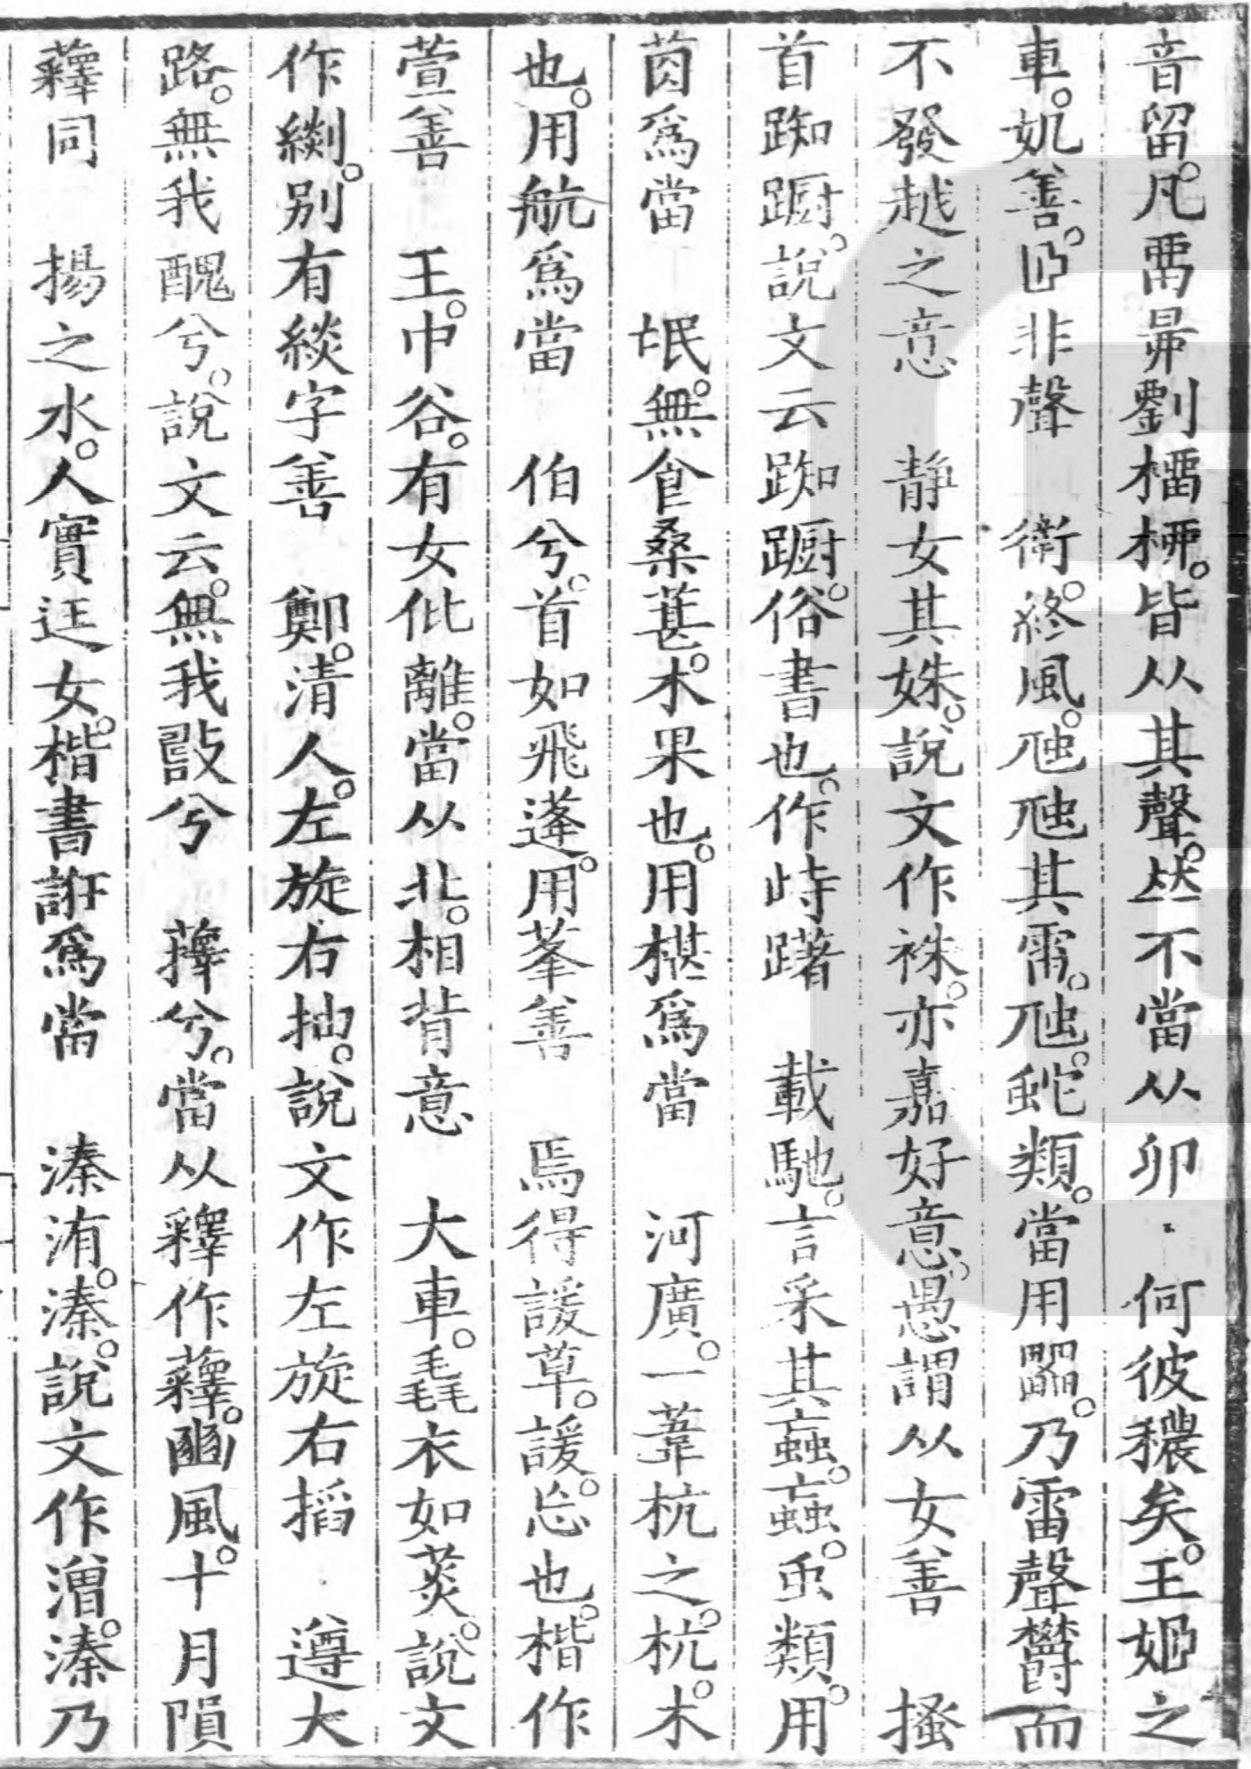 音留。凡䨓昴劉橊桺。皆从其聲。㳄不當从卯　何彼穠矣。王姬之
車。㚻善。𦣞非聲　衛。終風。虺虺其雷。虺。蛇類。當用畾。乃雷聲欝而
不發越之意　靜女其姝。說文作袾。亦嘉好意。愚謂从女善　搔
首踟躕。說文云踟躕。俗書也。作峙躇　載馳。言采其蝱。蝱。虫類。用
莔爲當　氓。無食桑葚。木果也。用椹爲當　河廣。一葦杭之。杭。木
也。用航爲當　伯兮。首如飛蓬。用莑善　焉得諼草。諼。忘也。楷作
萱善　王。中谷。有女仳離。當从北。相背意　大車。毳衣如菼。說文
作緂。别有緂字善　鄭。清人。左旋右抽。說文作左旋右搯　遵大
路。無我醜兮。說文云。無我𣀳兮　蘀兮。當从釋作蘀。豳風。十月隕
蘀同　揚之水。人實迋女。楷書誑爲當　溱洧。溱。說文作潧。溱乃